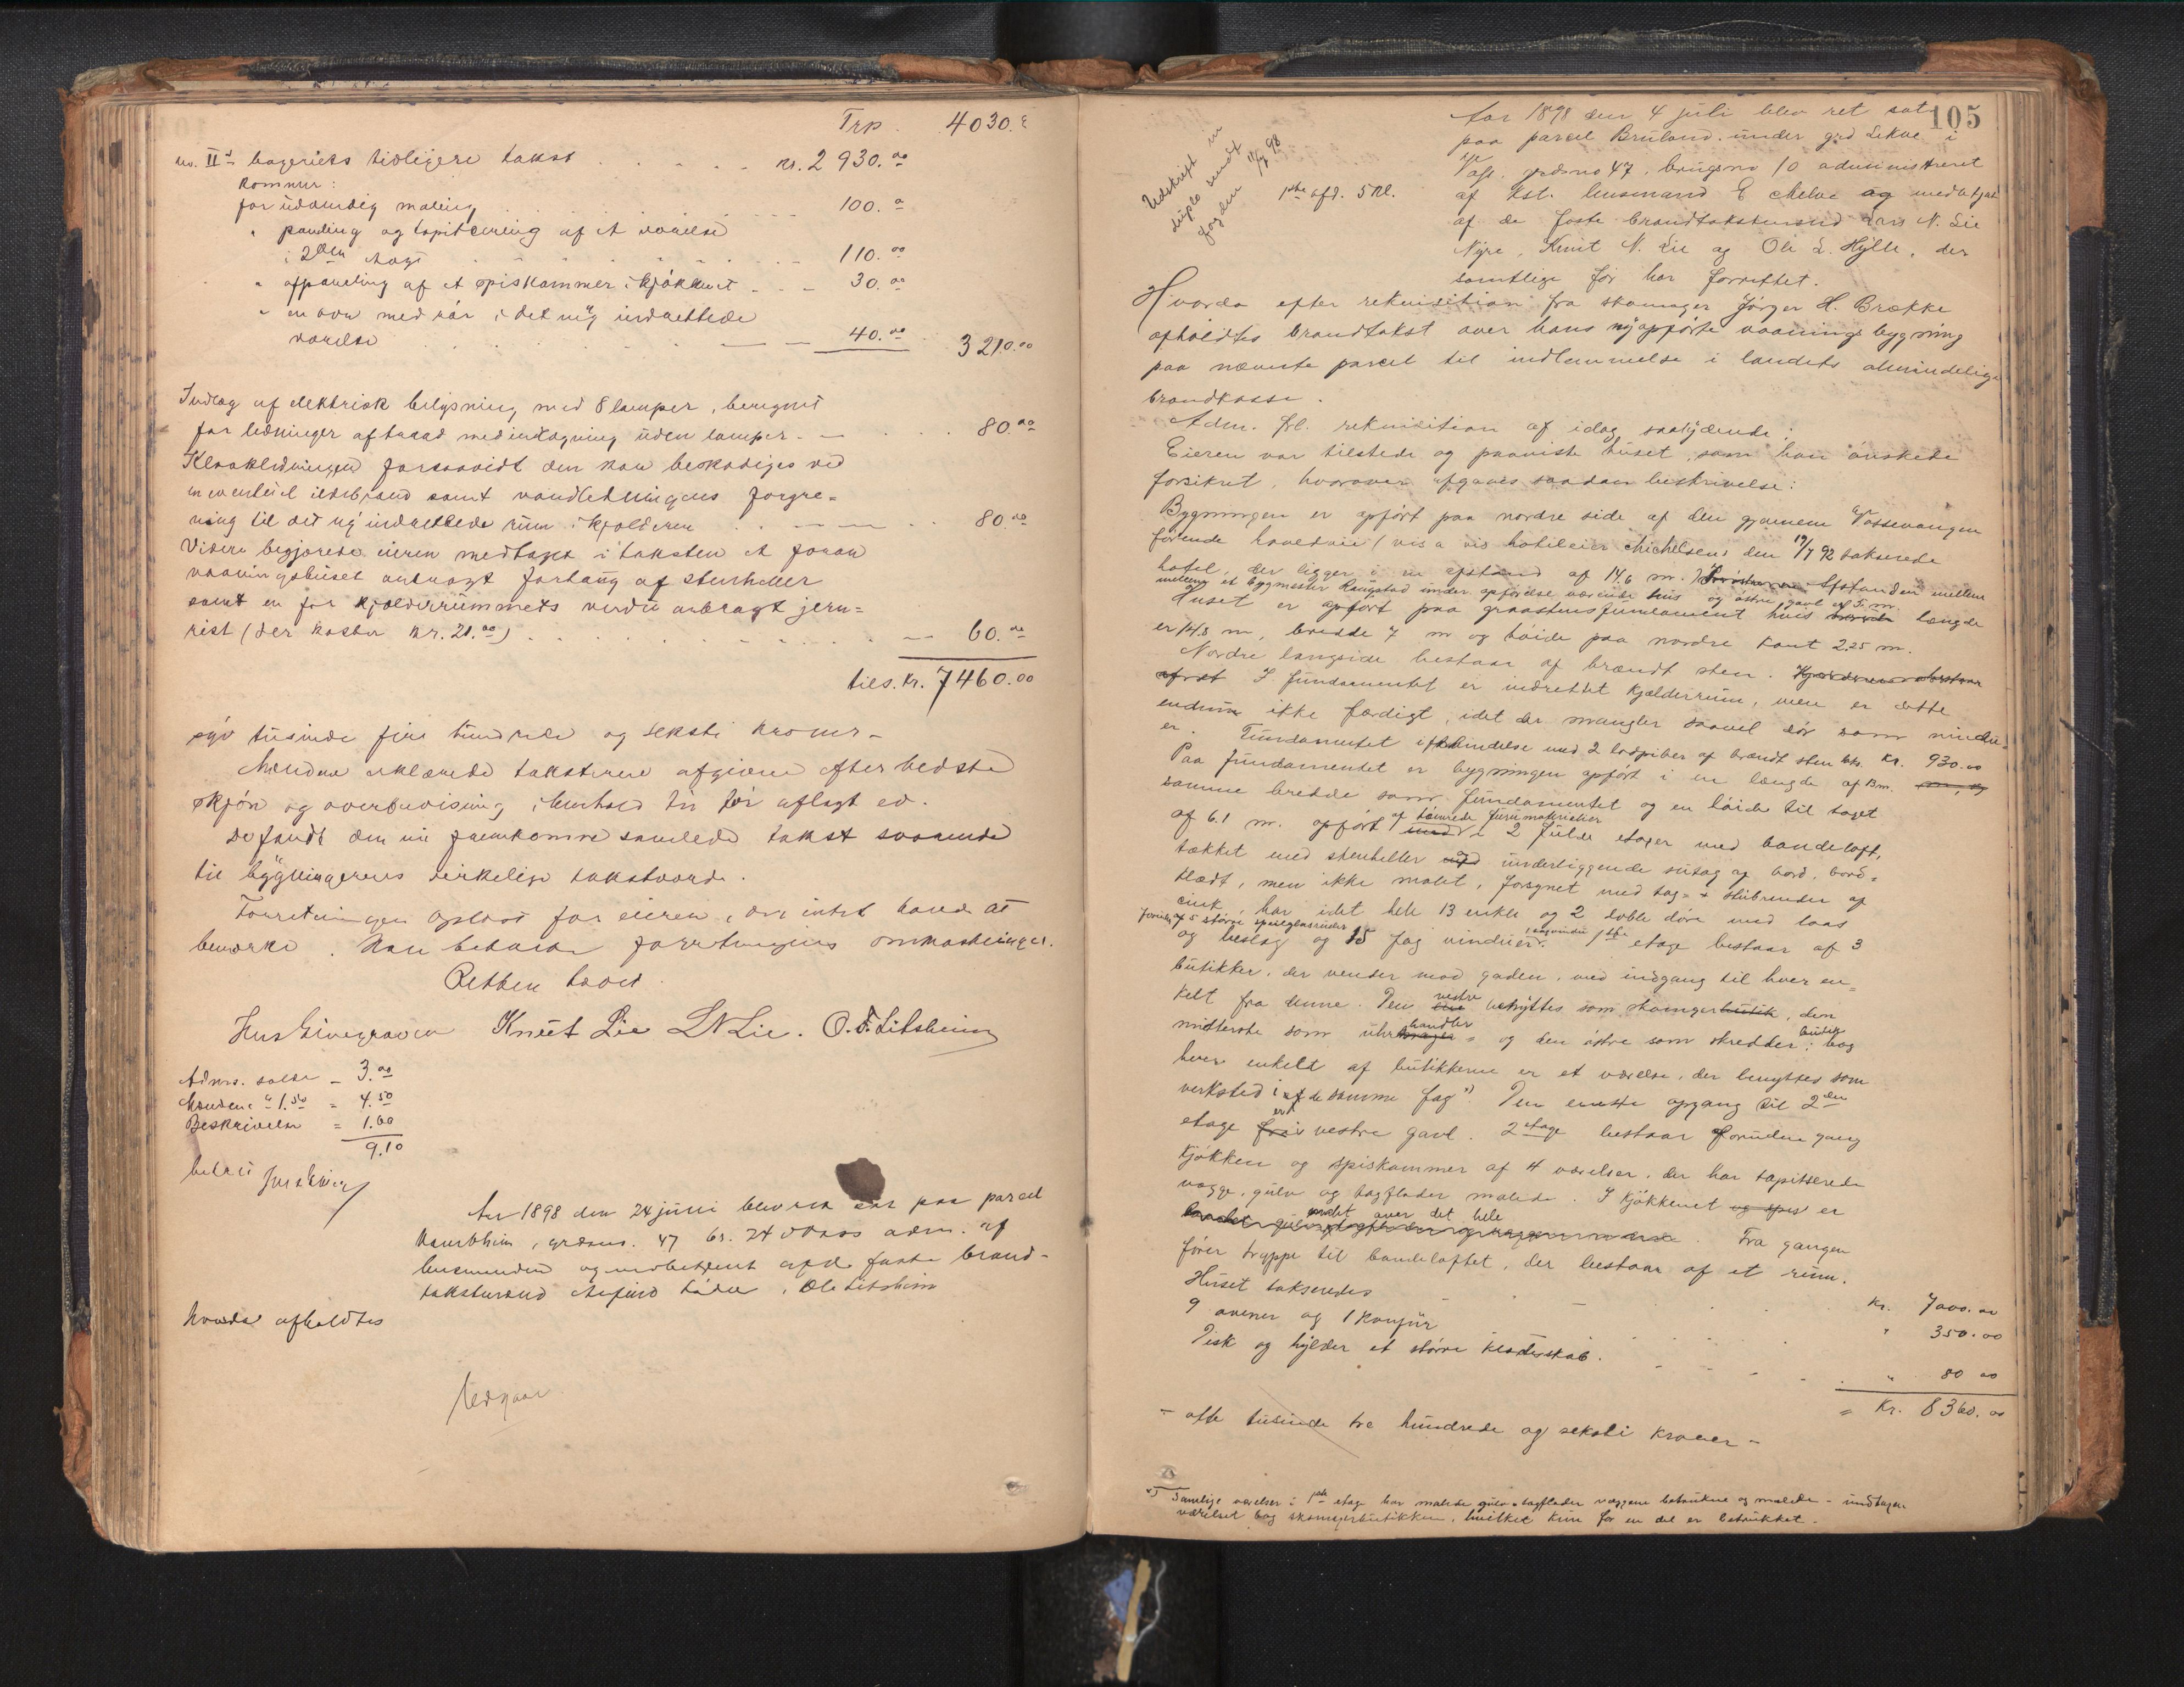 Trp. 4030.
no. IIs bageriets tidligere takst . . . . kr. 2930.00
Kommer:
for udvendig maling . . . 100.
" panling og tapitsering af et værelse
i 2den etage . . . 110.00
" afpanling af et spiskammer i kjøkkenet - - - 30.00
" en ovn med rør i det nyindrettede
værelse . . . 40.00 3210.00
Indlæg af elektrisk belysning med 8 lamper, beregnet
for ledninger aftaxed med indlægning uden lamper - 80.00
Kloakledningen forsaavidt den kan beskadiges ved
en eventuel ildebrand samt vandledningens forgre=
ning til det nyindrettede rum i kjælderen . . 80.00
Videre begjærede eieren medtaget i taksten et foran
vaaningshuset anbragt fortaug af stenheller
samt en for kjælderrummets vindu anbragt jern=
rist (der koster kr. 20.00) . . . 60.00
tils. kr. 7460.00
syv tusinde fire hundrede og seksti kroner -
Mændene erklærede taksterne afgivne efter bedste
skjøn og overbevisning i henhold til før aflagt ed.
De fandt den nu fremkomne samlede takst svarende
til bygningernes virkelige takstværdi.
Forretningen oplæst for eieren, der intet havde at
bemærke. Han betaler forretningens omkostninger.
Retten hævet.
Knut Lie LNLie. O. T. Litsheim
Adms. salær - 3.00
Mændene " 1.50 = 4.50
Beskrivelse = 1.60
9.10
betalt
Aar 1898 den 24 juni blev ret sat paa parcel
gardsno. 47 br. 24 Voss adm. af
lensmanden og medbetjent af de faste brand-
takstmænd , Ole Litsheim
Hvorda afholdtes
Udgaar
105
Udskrift in
duplo sendt
fogden 11/7 98
1ste afd. 5 Kl.
Aar 1898 den 4 juli blev ret sat
paa parcel Bruland under grd Lekve i
Voss, gardsno 47, brugsno 10 administreret
af kst. lensmand E Melve og medbetjent
af de faste brandtakstmænd Lars N. Lie
Nyre, Knut N. Lie og Ole L. Hylle, der
samtlige før har forrettet.
Hvorda efter rekvisition fra skomager Jørgen H. Brække
afholdtes brandtakst over hans nyopførte vaaningsbygning
paa nævnte parcel til indlemmelse i landets almindelige
brandkasse.
Adm. frl. rekvisition af idag saalydende:
Eieren var tilstede og paaviste huset, som han ønskede
forsikret, hvorover afgaves saadan beskrivelse:
Bygningen er opført paa nordre side af den gjennem Vossevangen
førende hovedvei (vis a vis hoteleier Michelsens den 19/7 92 takserede
hotel, der ligger i en afstand af 14.6 m.) Afstanden mellem
mellem et bygmester Rangstad under opførelse værende hus og østre gavl er 5 m.
Huset er opført paa graastensfundament hvis længde
er 14.8 m, bredde 7 m og høide paa nordre kant 2.25 m.
Nordre langside bestaar af brændt sten.
I fundamentet er indrettet kjælderrum, men er dette
endnu ikke færdigt, idet der mangler saavel dør som vindu-
er. Fundamentet i forbindelse med 2 lodpiber af brændt sten taks. kr. 930.00
Paa fundamentet er bygningen opført i en længde af 13 m.
samme bredde som fundamentet og en høide til taget
af 6.1 m. opført af tømrede furumaterialier i 2 fulde etager med bandeloft,
tækket med stenheller og underliggende sutag af bord, bord=
klædt, men ikke malet, forsynet med tag- & stubrender af
zink, har idet hele 13 enkle og 2 doble døre med laas
foruden 5 større speilglasruder
og beslag og 15 fag vinduer. 1ste etage bestaar af 3
butikker, der vender mod gaden, med indgang til hver en=
kelt fra denne. Den vestre benyttes som skomager butik, den
midterste som uhrhandler = og den østre som skrædder: butik bag
hver enkelt af butikkerne er et værelse, der benyttes som
verksted i de samme fag x). Den eneste opgang til 2den
etage er i vestre gavl. 2 etage bestaar foruden gang
kjøkken og spiskammer af 4 værelser, der har tapitserede
vægge, gulv og tagflader malede. I kjøkkenet er
malet over det hele. Fra gangen
fører trappe til bandeloftet, der bestaar af et rum.
Huset takseredes . . . Kr. 7000.00
9 ovner og 1 komfur . . . " 350.00
Disk og hylder et større klædeskab. . . . " 80 00
= Kr. 8360.00
- otte tusinde tre hundrede og seksti kroner -
x) Samtlige værelser i 1ste etage har malede gulv & tagflader væggene betrukne og malede - undtagen
værelset bag skomagerbutikken, hvilket kun for en del er betrukket.